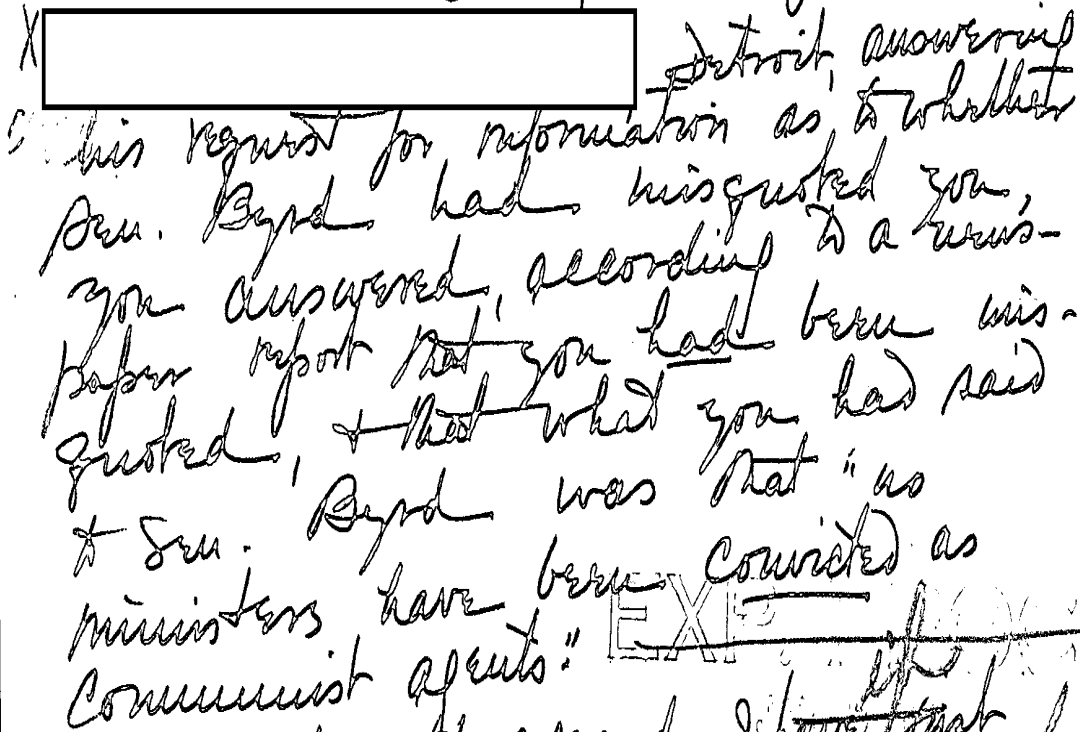 X
Detroit, answering
his request for information as to whether
Sen. Byrd had misquoted you,
you answered, according to a news-
paper report that you had been mis-
quoted, & that what you had said
to Sen. Byrd was that "no
ministers have been convicted as
Communist agents."
EXP
if